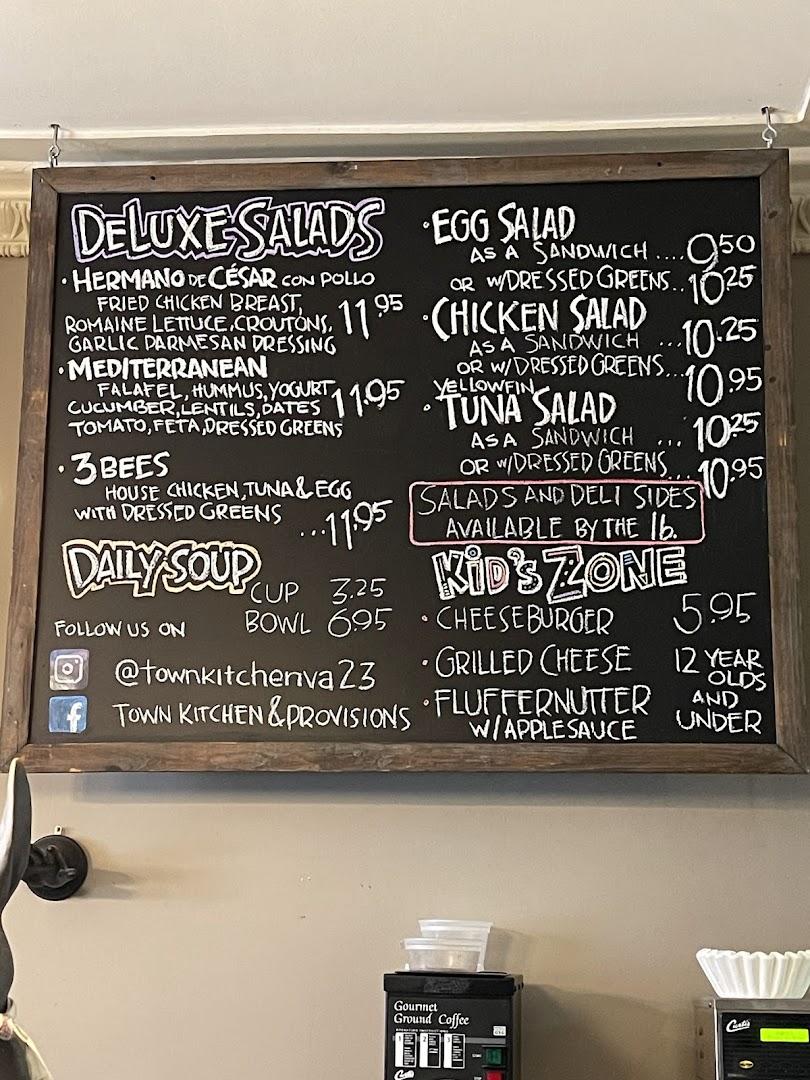 DELUXE SALADS
· HERMANO DE CÉSAR CON POLLO
FRIED CHICKEN BREAST,
ROMAINE LETTUCE, CROUTONS, 11.95
GARLIC PARMESAN DRESSING
· MEDITERRANEAN
FALAFEL, HUMMUS, YOGURT,
CUCUMBER, LENTILS, DATES 11.95
TOMATO, FETA, DRESSED GREENS
· 3 BEES
HOUSE CHICKEN, TUNA & EGG
WITH DRESSED GREENS ...11.95
DAILY SOUP
CUP 3.25
BOWL 6.95
FOLLOW US ON
@townkitchenva23
f TOWN KITCHEN & PROVISIONS
· EGG SALAD
AS A SANDWICH .... 9.50
OR W/DRESSED GREENS.. 10.25
· CHICKEN SALAD
AS A SANDWICH ... 10.25
OR W/DRESSED GREENS... 10.95
YELLOWFIN
· TUNA SALAD
AS A SANDWICH ... 10.25
OR W/DRESSED GREENS... 10.95
SALADS AND DELI SIDES
AVAILABLE BY THE lb.
KiD'S ZONE
· CHEESEBURGER 5.95
· GRILLED CHEESE 12 YEAR
OLDS
· FLUFFERNUTTER AND
W/APPLESAUCE UNDER
Gourmet
Ground Coffee
1 2 3
Curtis
Curtis